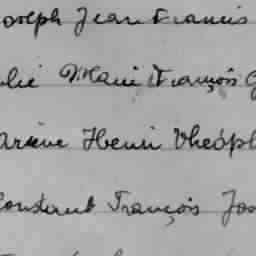 oseph Jean Francis
Marie François
arsène Henri Théoph
Constant François Jos